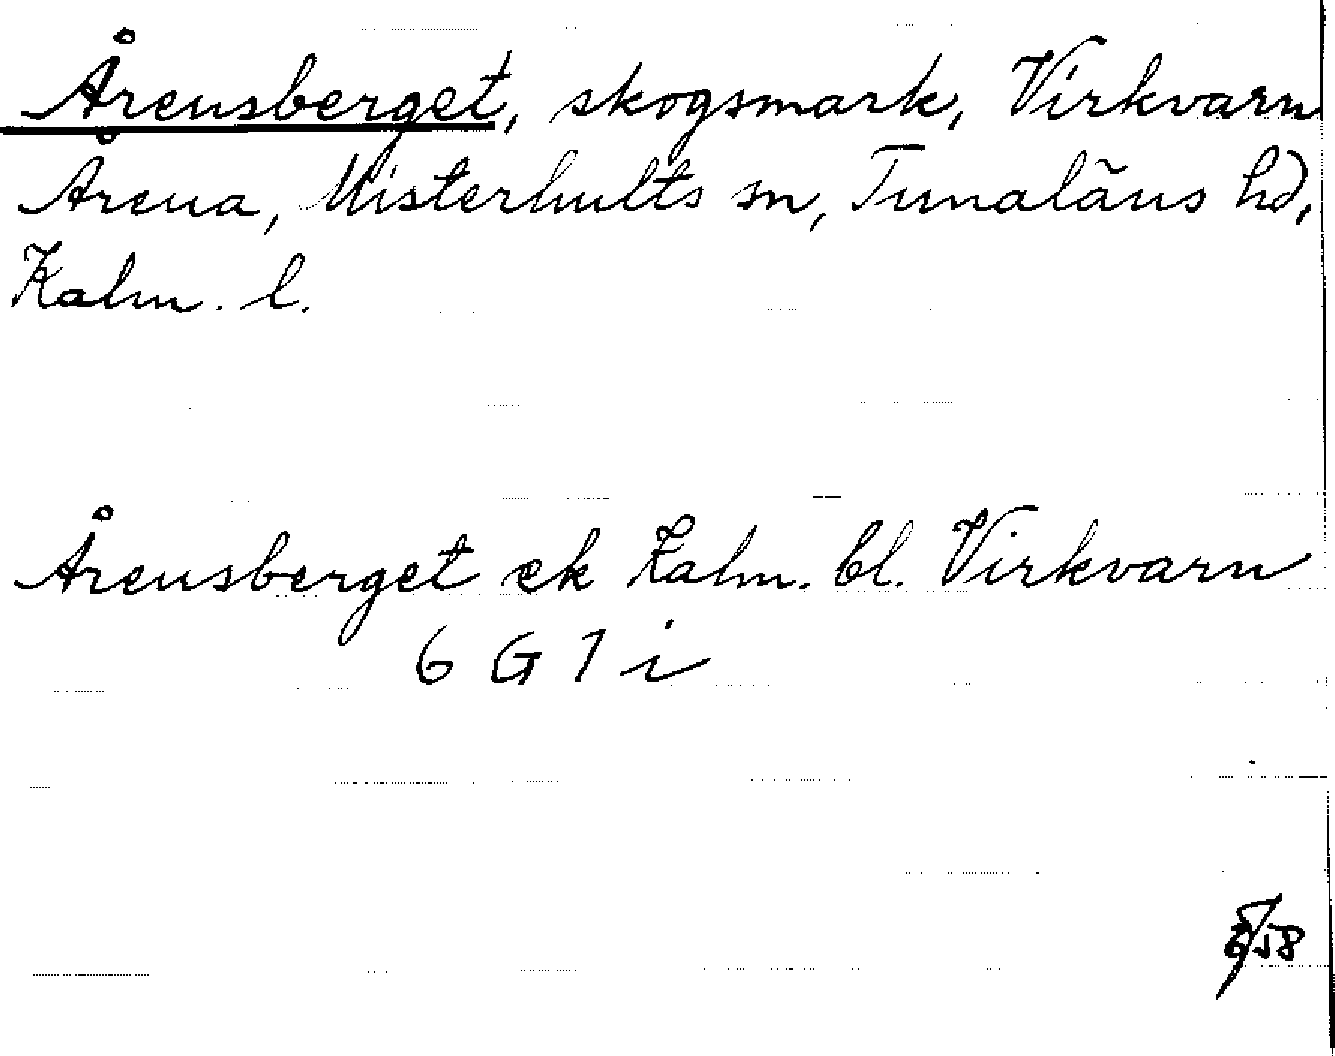 Årensberget, skogsmark, Virkvarn
Årena, Misterhults sn, Tunaläns hd,
Kalm. l.
Årensberget ek Kalm. bl. Virkvarn
6 G 1 i